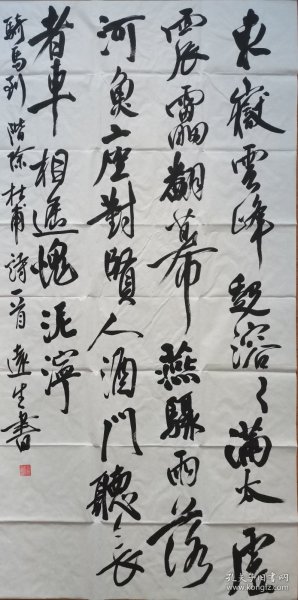 東嶽雲峰起溶々滿太虚
震雷翻幕燕驟雨落
河魚座對賢人酒門聽長
者車相邀愧泥濘
騎馬到階除杜甫詩一首生書